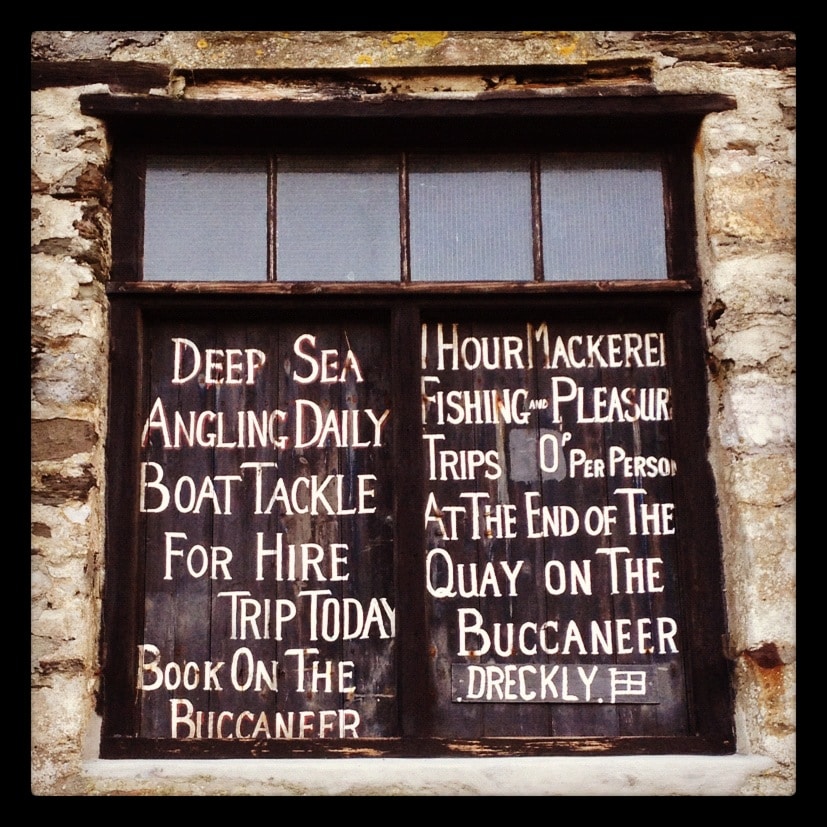 DEEP SEA
ANGLING DAILY
BOAT TACKLE
FOR HIRE
TRIP TODAY
BOOK ON THE
BUCCANEER
1 HOUR MACKEREL
FISHING AND PLEASUR
TRIPS 0P PER PERSON
AT THE END OF THE
QUAY ON THE
BUCCANEER
.DRECKLY.